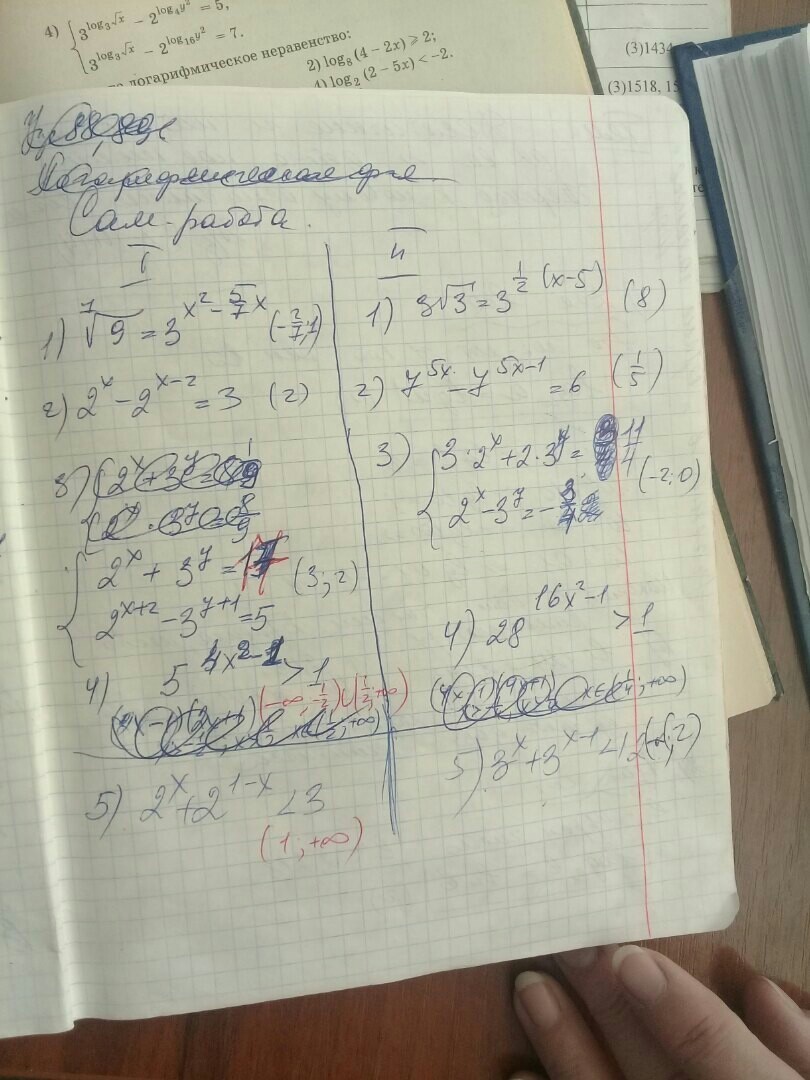 4) { 3^{log_3 √x} − 2^{log_4 y²} = 5,
3^{log_3 √x} − 2^{log_{16} y²} = 7.
логарифмическое неравенство:
2) log_8 (4 − 2x) ⩾ 2;
4) log_2 (2 − 5x) < −2.
(3)1434
(3)1518, 15
Сам. работа.
I
1) ⁷√9 = 3^{x² − 5/7 x} (−2/7; 1)
2) 2^x − 2^{x−2} = 3 (2)
3)
{ 2^x + 3^y = 17 (3; 2)
2^{x+2} − 3^{y+1} = 5
4) 5^{4x²−1} > 1
(−∞; −1/2) ∪ (1/2; +∞)
5) 2^x + 2^{1−x} < 3
(1; +∞)
II
1) 3√3 = 3^{1/2 (x−5)} (8)
2) 7^{5x} − 7^{5x−1} = 6 (1/5)
3) { 3·2^x + 2·3^y = 11/4
2^x − 3^y = −3/4 (−2; 0)
4) 28^{16x²−1} > 1
5) 3^x + 3^{x−1} < 12